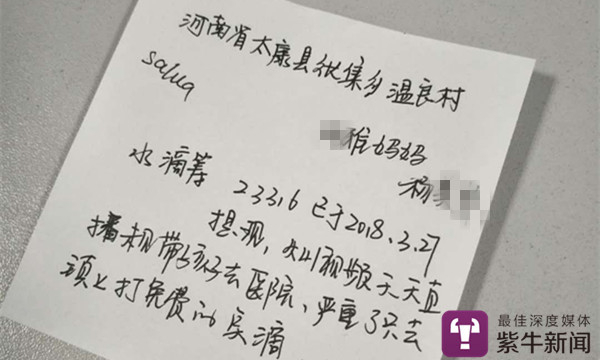 河南省太康县张集乡温良村
salua
雅妈妈
杨
水滴筹 23316 已于2018.3.27
提现,火山视频天天直
播未带孩子去医院,严重了只去
镇上打免费的点滴
最佳深度媒体
紫牛新闻